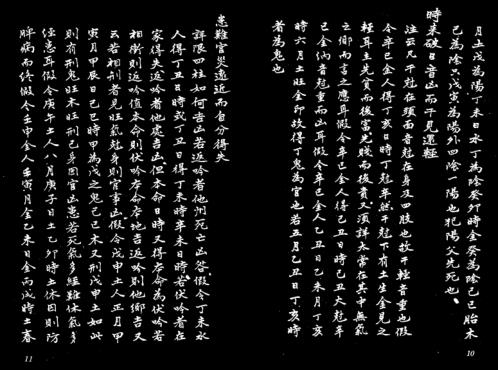 月土戊為陰丁未日木丁為陰癸卯時金癸為陰己巳胎木
己為陰只戊寅為陽外四陰一陽也犯陽父先死也
時來破日音凶而干見還輕
注云凡干剋在頭面音剋在身及四肢也故干輕音重也假
令辛巳金人得丁亥日時丁剋年然干剋下有土生金見之
輕耳主先貧而後富先賤而後貴又須詳大常在其中無氣
之鄉而言之應耳假令辛巳金人得己丑日時己丑大剋年
己金納音剋重而凶耳假令辛巳金人乙丑日己未月丁亥
時六月土旺金印故得丁鬼為官也若五月乙丑日丁亥時
者為鬼也
10
患難官災遠近而自分得失
詳眼四柱如何吉凶若返吟者他州死亡凶咎假令丁未水
人得丁丑日時或丁丑日得丁未時辛未日時若伏吟者在
家得失返吟者他處吉凶但本命日時又得本命為伏吟若
相衝則返吟值本命則伏吟本命本地吉返吟則他鄉吉又
云若相刑者見旺氣剋身則官事凶假令戊申土人正月甲
寅月甲辰日己巳時甲為戊之鬼己巳木又刑戊申土如此
則有刑鬼旺木旺刑己身因官凶患若死氣多經難休氣多
經患耳假令庚午土人八月庚子日土乙卯時土休囚則防
時病而終假令壬申金人壬寅月金乙未日金丙戌時土春
11